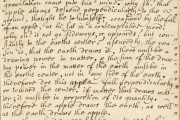 gravitation came into his mind. Why sh.d that
apple always descend perpendicularly to the
ground, thought he to himself: occasion'd by the fall
of an apple, as he sat in a contemplative mood.
why sh.d it not go sideways, or upwards, but con-
stantly to the earths center? assuredly, the rea-
son is, that the earth draws it. there must be a
drawing power in matter, & the sum of the draw-
ing power in the matter of the earth must be in
the earths center, not in any side of the earth.
therefore dos this apple fall perpendicularly, or
toward the center. if matter thus draws mat-
ter; it must be in proportion of its quantity.
therefore the apple draws the earth, as well as
the earth draws the apple.